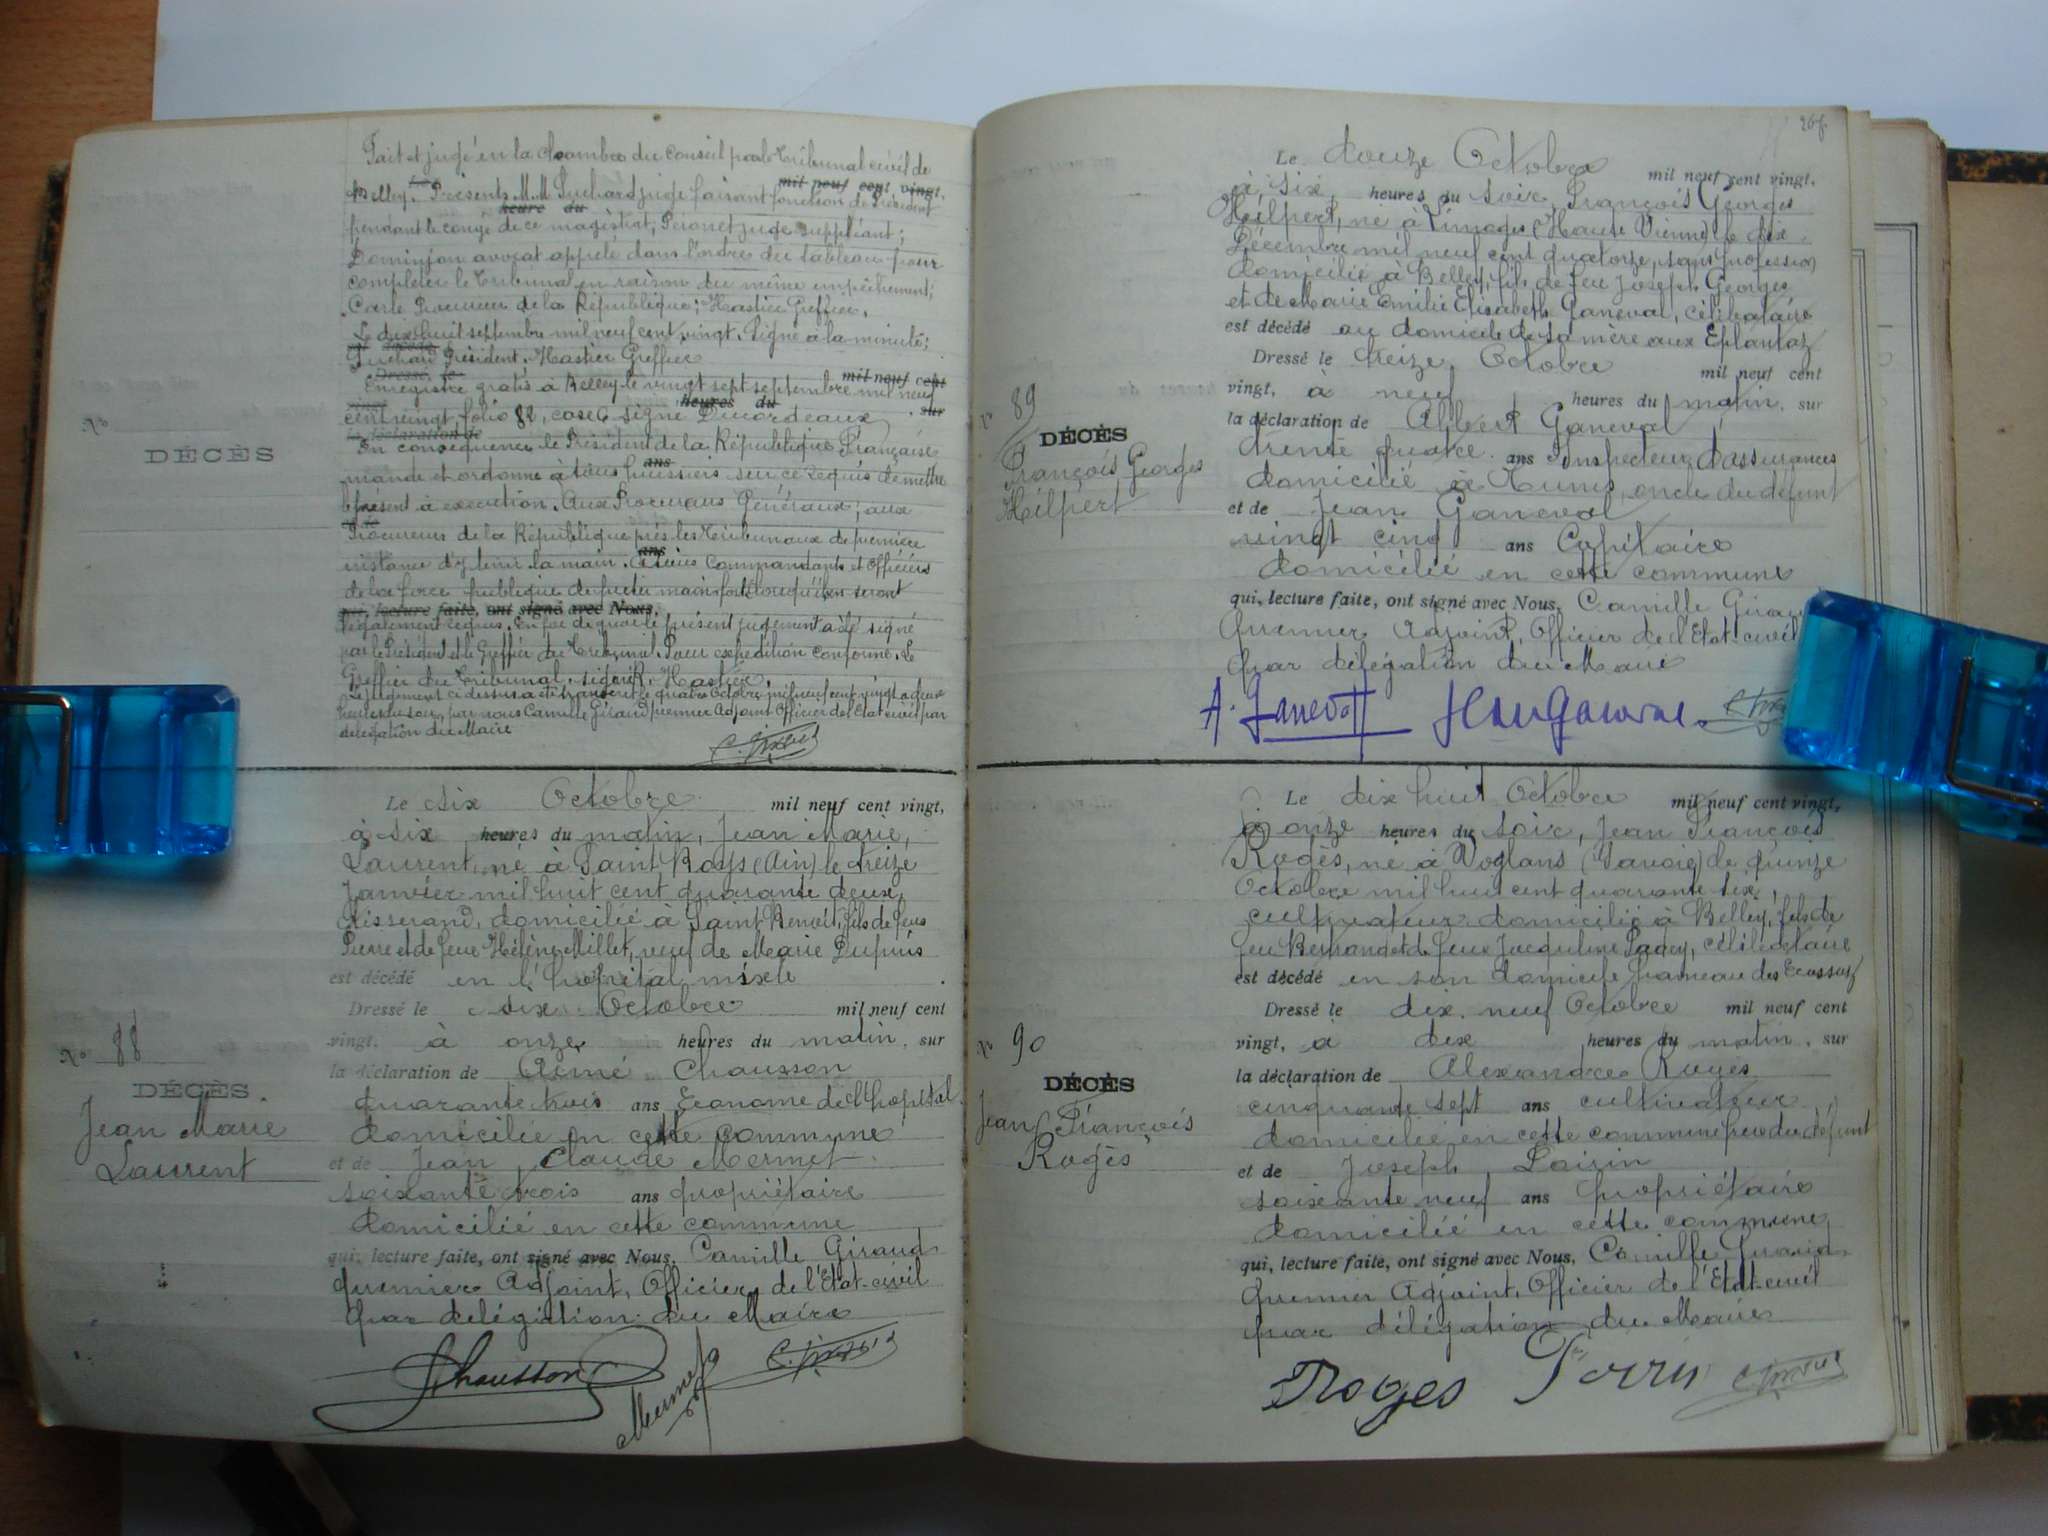 Fait et jugé en la Chambre du Conseil par le Tribunal civil de
mil neuf cent vingt,
Belley. Présents M.M. Suchard juge faisant fonction de Président
heure du
pendant le congé de ce magistrat, juge suppléant;
Dominjon avocat appelé dans l'ordre du tableau pour
compléter le tribunal en raison du même empêchement;
Procureur de la République; Hastier Greffier.
Le dix huit septembre mil neuf cent vingt. Signé à la minute;
Suchard Président. Hastier Greffier
Dressé, le mil neuf cent
Enregistré gratis à Belley le vingt sept septembre mil neuf
vingt heures du sur
cent vingt, folio 82, case 6 signé Ducordeaux
la déclaration de
En conséquence le Président de la République Française
ans
mande et ordonne à tous huissiers sur ce requis de mettre
le présent à execution. Aux Procureurs Généraux; aux
et de
Procureurs de la République près les Tribunaux de première
ans
instance d'y tenir la main. A tous Commandants et Officiers
de la force publique de prêter main forte lorsqu'ils en seront
qui, lecture faite, ont signé avec Nous,
légalement requis. En foi de quoi le présent jugement a été signé
par le Président et le Greffier du Tribunal. Pour expédition conforme. Le
Greffier du Tribunal, signé: Hastier.
Le jugement ci dessus a été transcrit le quatre Octobre mil neuf cent vingt a deux
heures du soir, par nous Camille Giraud premier Adjoint Officier de l'Etat civil par
délégation du Maire
C. Giraud
No
DÉCÈS
Le six Octobre mil neuf cent vingt,
à six heures du matin, Jean Marie,
Laurent, né à Saint (Ain) le treize
Janvier mil huit cent quarante deux,
Tisserand, domicilié à Saint Benoit, fils de feus
Pierre et de feue Hélène Millet, veuf de Marie Dupuis
est décédé en l'hopital mixte
Dressé le six Octobre mil neuf cent
vingt, à onze heures du matin, sur
la déclaration de Aimé Chausson
quarante trois ans Econome de l'hopital
domicilié en cette commune
et de Jean Claude Mermet
soixante trois ans propriétaire
domicilié en cette commune
qui, lecture faite, ont signé avec Nous, Camille Giraud
premier Adjoint, Officier de l'Etat-civil
par delégation du Maire
No 88
DÉCÈS.
Jean Marie
Laurent
Chausson Mermet C. Giraud
Le douze Octobre mil neuf cent vingt,
à six heures du soir, François Georges
Hilpert, né à Limoges (Haute Vienne) le dix
Décembre mil neuf cent quatorze, sans profession
domicilié à Belley, fils de feu Joseph Georges
et de Marie Emilie Elisabeth Ganeval, célibataire
est décédé au domicile de sa mère aux Eplantaz
Dressé le treize Octobre mil neuf cent
vingt, à neuf heures du matin, sur
la déclaration de Albert Ganeval
trente quatre ans Inspecteur d'assurances
domicilié à Tunis, oncle du défunt
et de Jean Ganeval
vingt cinq ans Capitaine
domicilié en cette commune
qui, lecture faite, ont signé avec Nous, Camille Giraud
premier Adjoint, Officier de l'Etat-civil
par délégation du Maire
No 89
DÉCÈS
François Georges
Hilpert
A. Ganeval Jean Ganeval C. Giraud
Le dix huit Octobre mil neuf cent vingt,
à onze heures du soir, Jean François
Rogès, né à Voglans (Savoie) le quinze
Octobre mil huit cent quarante six,
cultivateur domicilié à Belley, fils de
feu Bernard et de feue Jacqueline, célibataire
est décédé en son domicile hameau des Ecassaz
Dressé le dix neuf Octobre mil neuf cent
vingt, à dix heures du matin, sur
la déclaration de Alexandre Roges
cinquante sept ans cultivateur
domicilié en cette commune frère du défunt
et de Joseph
soixante neuf ans propriétaire
domicilié en cette commune
qui, lecture faite, ont signé avec Nous, Camille Giraud
premier Adjoint, Officier de l'Etat-civil
par délégation du Maire
No 90
DÉCÈS
Jean François
Rogès
Roges C. Giraud